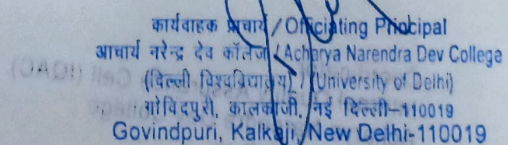 कार्यवाहक प्राचार्य / Officiating Principal
आचार्य नरेन्द्र देव कॉलेज / Acharya Narendra Dev College
(दिल्ली विश्वविद्यालय) / (University of Delhi)
गोविंदपुरी, कालकाजी, नई दिल्ली–110019
Govindpuri, Kalkaji, New Delhi-110019